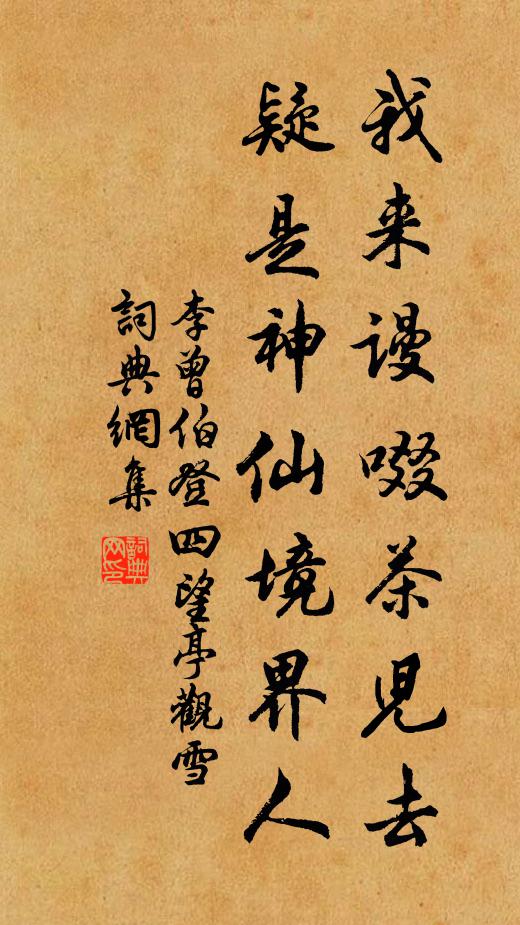 我来谩啜茶児去
疑是神仙境界人
李曾伯登四望亭觀雪
詞典網集
詞典网印